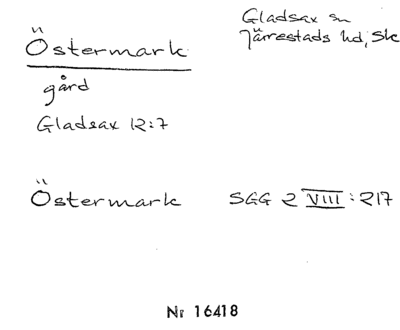 Östermark
Gladsax sn
Järrestads hd, Sk
gård
Gladsax 12:7
Östermark SGG 2 VIII:217
Nr 16418